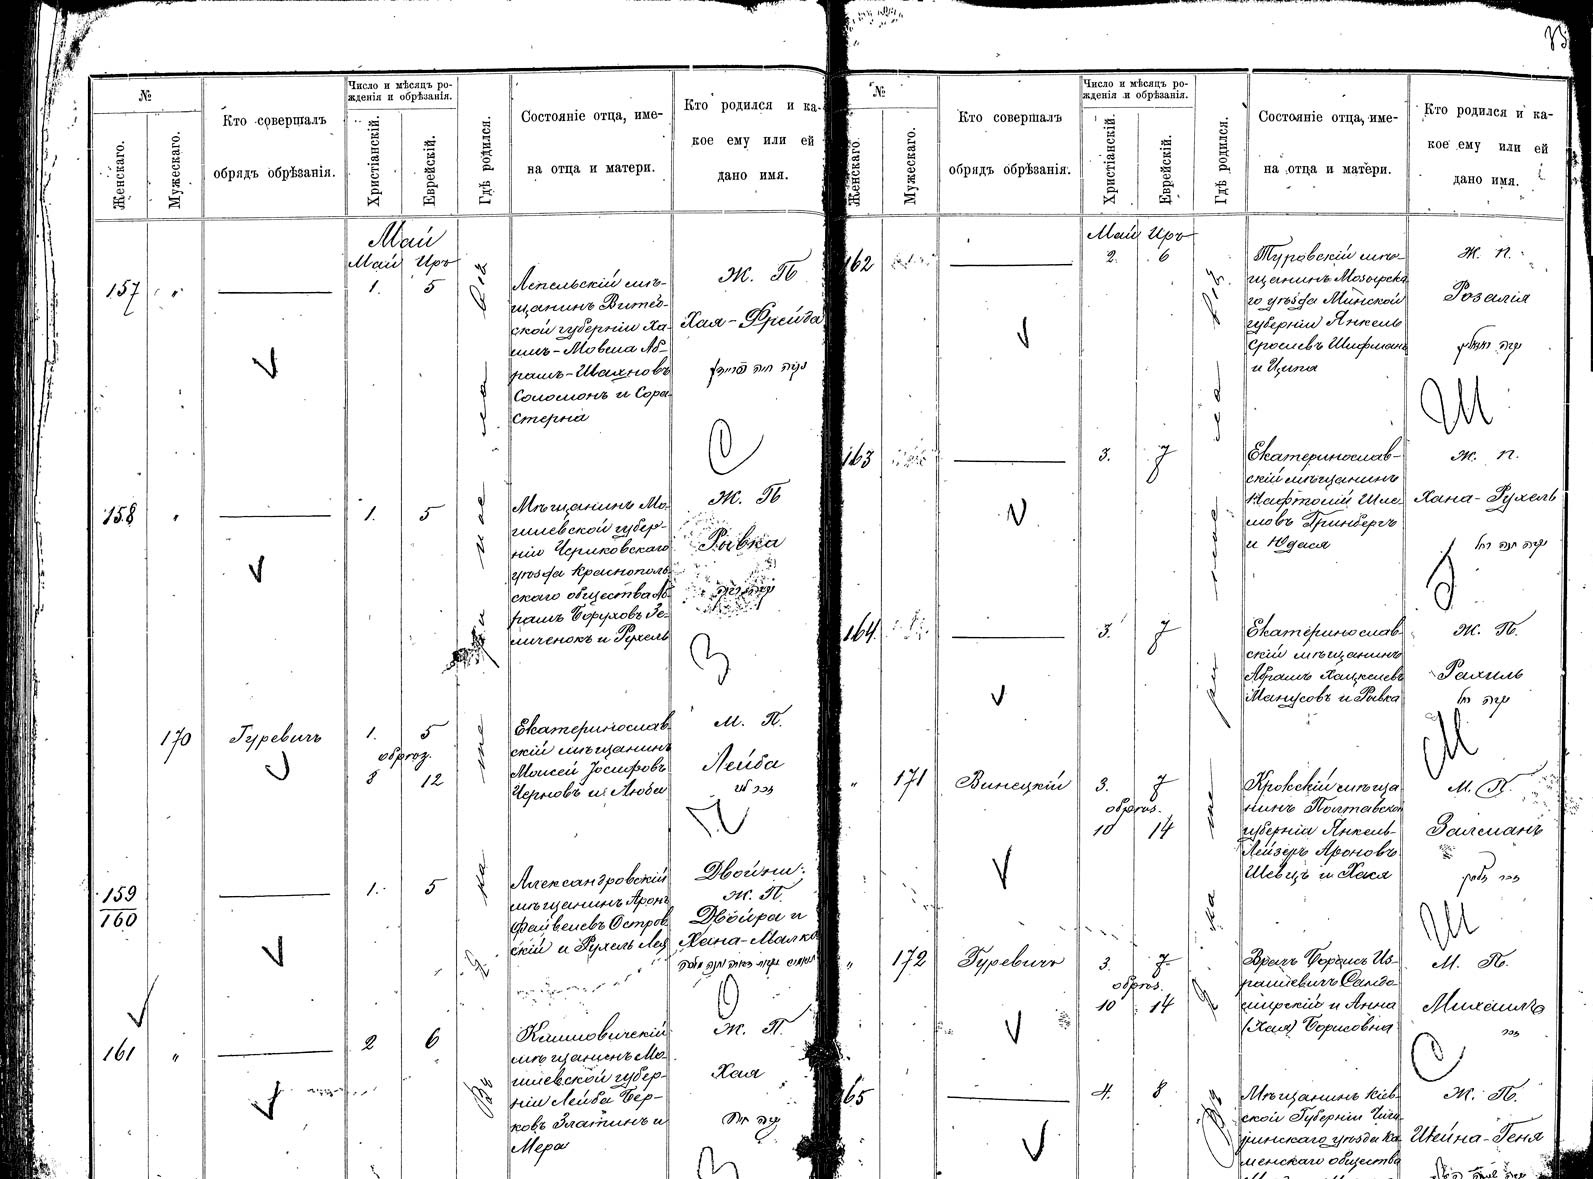 №
Женскаго.
Мужескаго.
Кто совершалъ
обрядъ обрѣзанія.
Число и мѣсяцъ ро-
жденія и обрѣзанія.
Христіанскій.
Еврейскій.
Гдѣ родился.
Состояніе отца, име-
на отца и матери.
Кто родился и ка-
кое ему или ей
дано имя.
Май
Май Иръ
157 "
1. 5
Лепельскій мѣ-
щанинъ Витеб-
ской губерніи Ха-
имъ-Мовша Аб-
рамъ-
Соломонъ и Сора
Стерна
Ж. П
Хая-Фрейда
С
158 "
1. 5
Мѣщанинъ Мо-
гилевской губер-
ніи Чериковскаго
уѣзда Краснополь-
скаго общества Аб-
рамъ Боруховъ Зе-
личенокъ и Рухель
Ж. П
Рывка
З
170
Гуревичъ
1. 5
обрѣз.
8 12
Екатеринослав-
скій мѣщанинъ
Моисей Іосифовъ
Черновъ и Люба
М. П.
Лейба
Ч
159
160
1. 5
Александровскій
мѣщанинъ Аронъ
Файвелевъ Остров-
скій и Рухель Лея
Двойни:
Ж. П.
Двойра и
Хана-Малка
О
161 "
2 6
Климовичскій
мѣщанинъ Мо-
гилевской губер-
ніи Лейба Бер-
ковъ Златинъ и
Мера
Ж. П.
Хая
З
№
Женскаго.
Мужескаго.
Кто совершалъ
обрядъ обрѣзанія.
Число и мѣсяцъ ро-
жденія и обрѣзанія.
Христіанскій.
Еврейскій.
Гдѣ родился.
Состояніе отца, име-
на отца и матери.
Кто родился и ка-
кое ему или ей
дано имя.
Май Иръ
162
2. 6
Туровскій мѣ-
щанинъ Мозырска-
го уѣзда Минской
губерніи Янкель
Сролевъ Шифманъ
и Ципа
Ж. П.
Розалія
Ш
163
3. 7
Екатеринослав-
скій мѣщанинъ
Нафтолій Шле-
мовъ Гринбергъ
и Юдася
Ж. П.
Хана-Рухель
Г
164
3. 7
Екатеринослав-
скій мѣщанинъ
Абрамъ Хацкелевъ
Манусовъ и Рывка
Ж. П.
Рахиль
М
" 171
Винецкій
3. 7
обрѣз.
10 14
мѣща-
нинъ Полтавской
губерніи Янкель-
Лейзеръ Ароновъ
Шевцъ и Хася
М. П.
Залманъ
Ш
" 172
Гуревичъ
3. 7
обрѣз.
10 14
Врачъ Борисъ Из-
раилевичъ Сандо-
мирскій и Анна
(Хая) Борисовна
М. П.
Михаилъ
С
165
4. 8
Мѣщанинъ Кіев-
ской Губерніи Чиги-
ринскаго уѣзда Ка-
менскаго общества
Ж. П.
Шейна-Геня